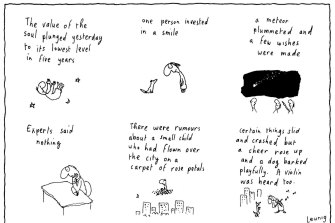 The value of the
soul plunged yesterday
to its lowest level
in five years
one person invested
in a smile
a meteor
plummeted and
a few wishes
were made
Experts said
nothing
There were rumours
about a small child
who had flown over
the city on a
carpet of rose petals
certain things slid
and crashed but
a cheer rose up
and a dog barked
playfully. A violin
was heard too.
Leunig